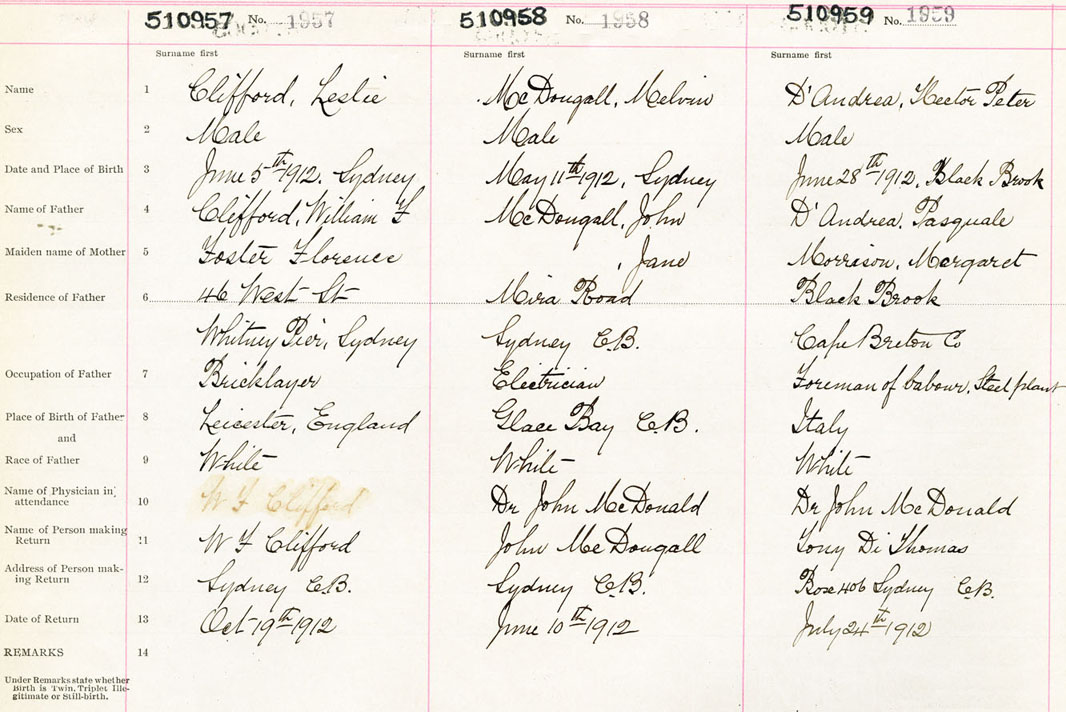 510957 No. 1957 510958 No. 1958 510959 No. 1959
Surname first Surname first Surname first
Name 1 Clifford, Leslie McDougall, Melvin D'Andrea, Hector Peter
Sex 2 Male Male Male
Date and Place of Birth 3 June 5th 1912. Sydney May 11th 1912, Sydney June 28th 1912, Black Brook
Name of Father 4 Clifford, William F McDougall, John D'Andrea, Pasquale
Maiden name of Mother 5 Foster Florence , Jane Morrison, Margaret
Residence of Father 6 46 West St Mira Road Black Brook
Whitney Pier, Sydney Sydney C.B. Cape Breton Co
Occupation of Father 7 Bricklayer Electrician Foreman of labour, Steel plant
Place of Birth of Father 8 Leicester, England Glace Bay C.B. Italy
and
Race of Father 9 White White White
Name of Physician in
attendance 10 W F Clifford Dr John McDonald Dr John McDonald
Name of Person making
Return 11 W F Clifford John McDougall Tony Di Thomas
Address of Person mak-
ing Return 12 Sydney C.B. Sydney C.B. Box 406 Sydney C.B.
Date of Return 13 Oct 19th 1912 June 10th 1912 July 24th 1912
REMARKS 14
Under Remarks state whether
Birth is Twin, Triplet Ille-
gitimate or Still-birth.